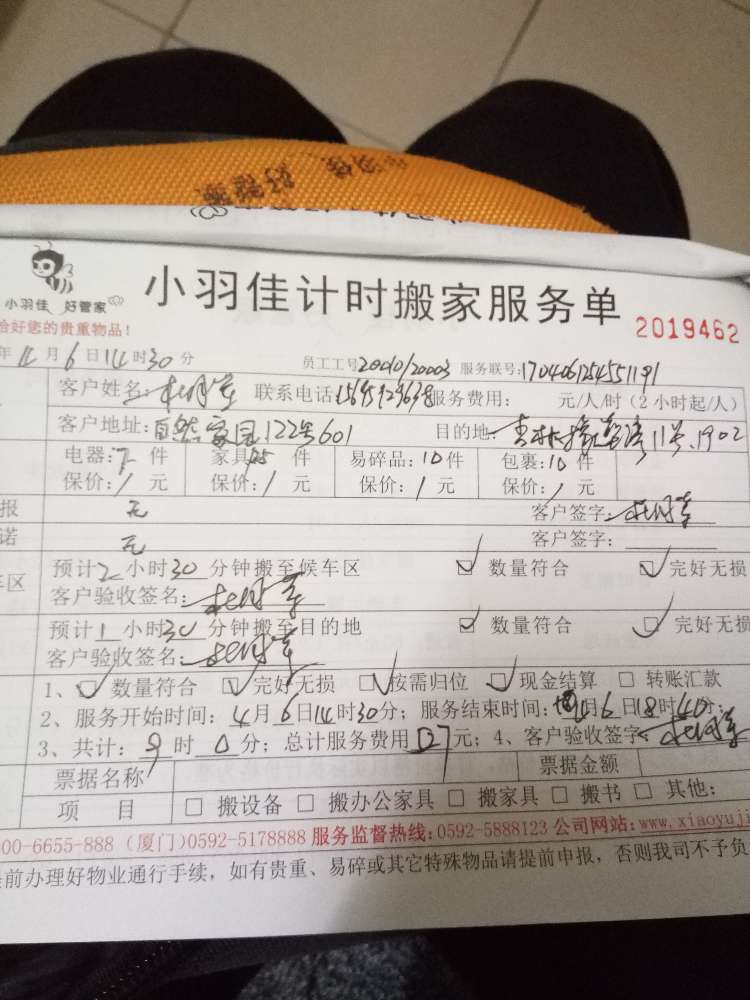 小羽佳 好管家
小羽佳计时搬家服务单
2019462
给好您的贵重物品!
年4月6日14时30分 员工工号20010/20003 服务联号:1704061254551191
客户姓名: 联系电话: 服务费用: 元/人/时(2小时起/人)
客户地址:自然家园122号601 目的地: 11号1902
电器:7件 家具: 件 易碎品:10件 包裹:10件
保价:/元 保价:/元 保价:/元 保价:/元
报 无 客户签字:
诺 无 客户签字:
车区 预计2小时30分钟搬至候车区 ☑ 数量符合 ☑ 完好无损
客户验收签名:
预计1小时30分钟搬至目的地 ☑ 数量符合 ☑ 完好无损
客户验收签名:
1、☑ 数量符合 ☑ 完好无损 ☑ 按需归位 ☑ 现金结算 □ 转账汇款
2、服务开始时间:4月6日14时30分;服务结束时间:4月6日18时40分;
3、共计:9时0分;总计服务费用 元;4、客户验收签字:
票据名称 票据金额
项 目 □ 搬设备 □ 搬办公家具 □ 搬家具 □ 搬书 □ 其他:
00-6655-888 (厦门)0592-5178888 服务监督热线:0592-5888123 公司网站:www.xiaoyuji
前办理好物业通行手续,如有贵重、易碎或其它特殊物品请提前申报,否则我司不予负